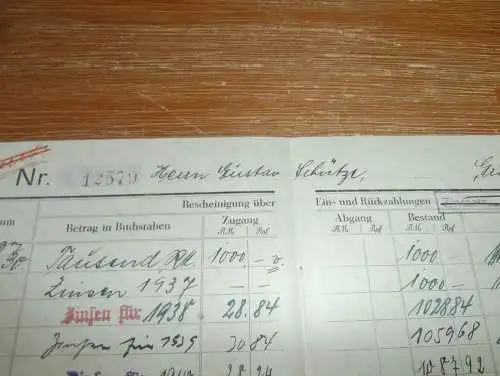 Nr. 12579 Herrn Gustav Schütze,
Bescheinigung über Ein- und Rückzahlungen
um Betrag in Buchstaben Zugang Abgang Bestand
R.M. Pf. R.M. Pf. R.M. Pf.
Tausend RM 1000 - 1000 -
Zinsen 1937 - - 1000 -
Zinsen für 1938 28.84 1028 84
Zinsen für 1939 30 84 1059 68
28 24 1087 92